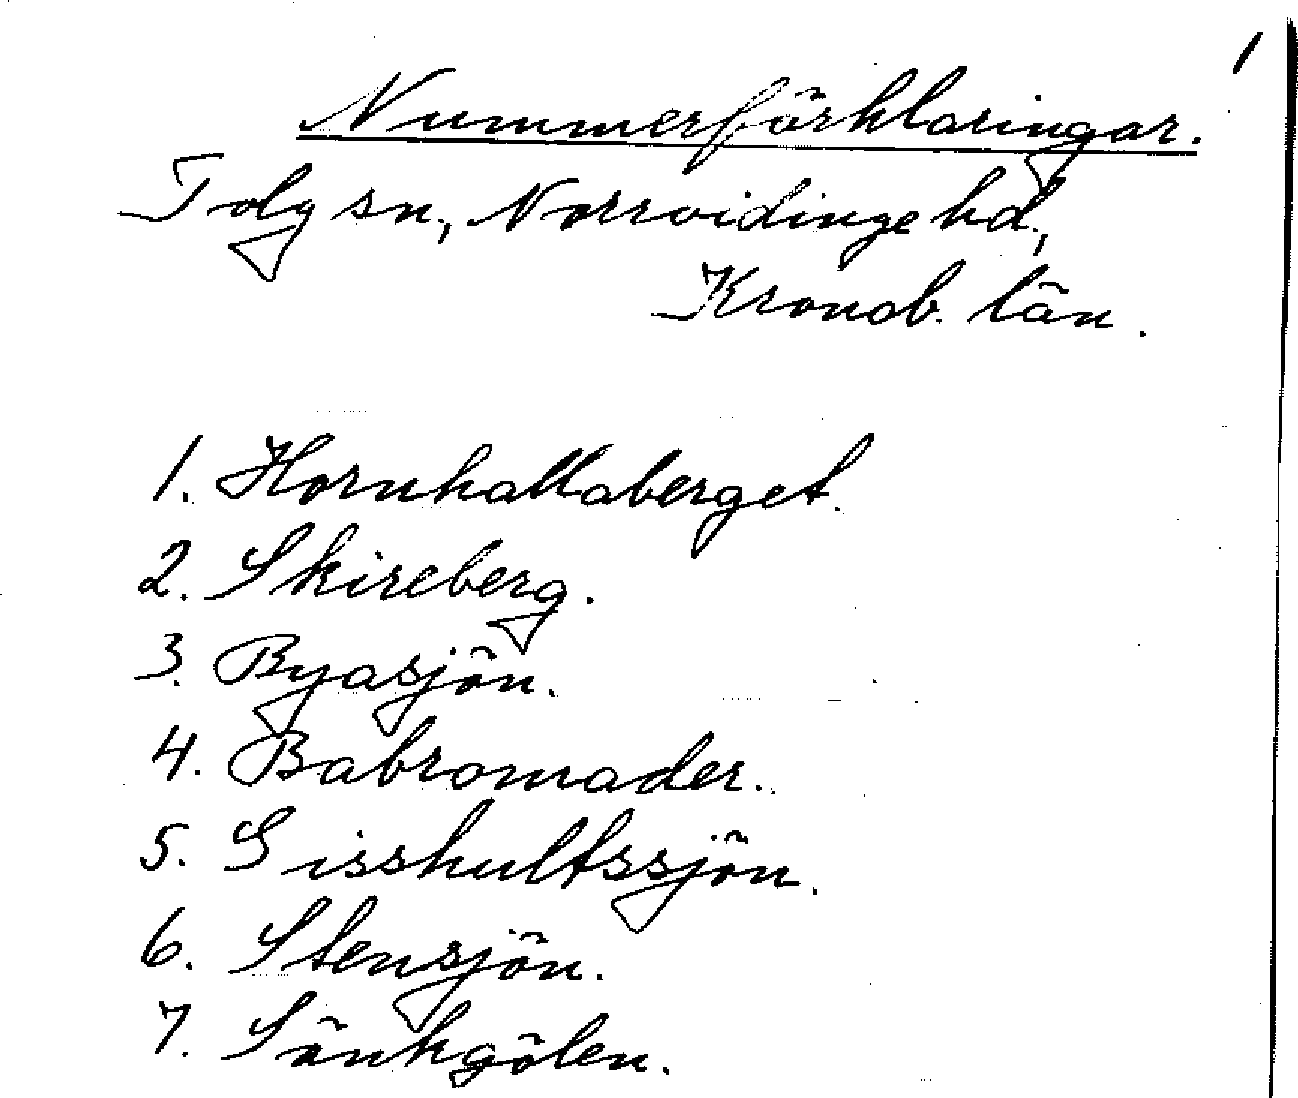 1
Nummerförklaringar.
Tolg sn, Norrvidinge hd,
Kronob. län.
1. Hornhallaberget.
2. Skireberg.
3. Byasjön.
4. Babromader.
5. Sisshultssjön.
6. Stensjön.
7. Sänkgölen.